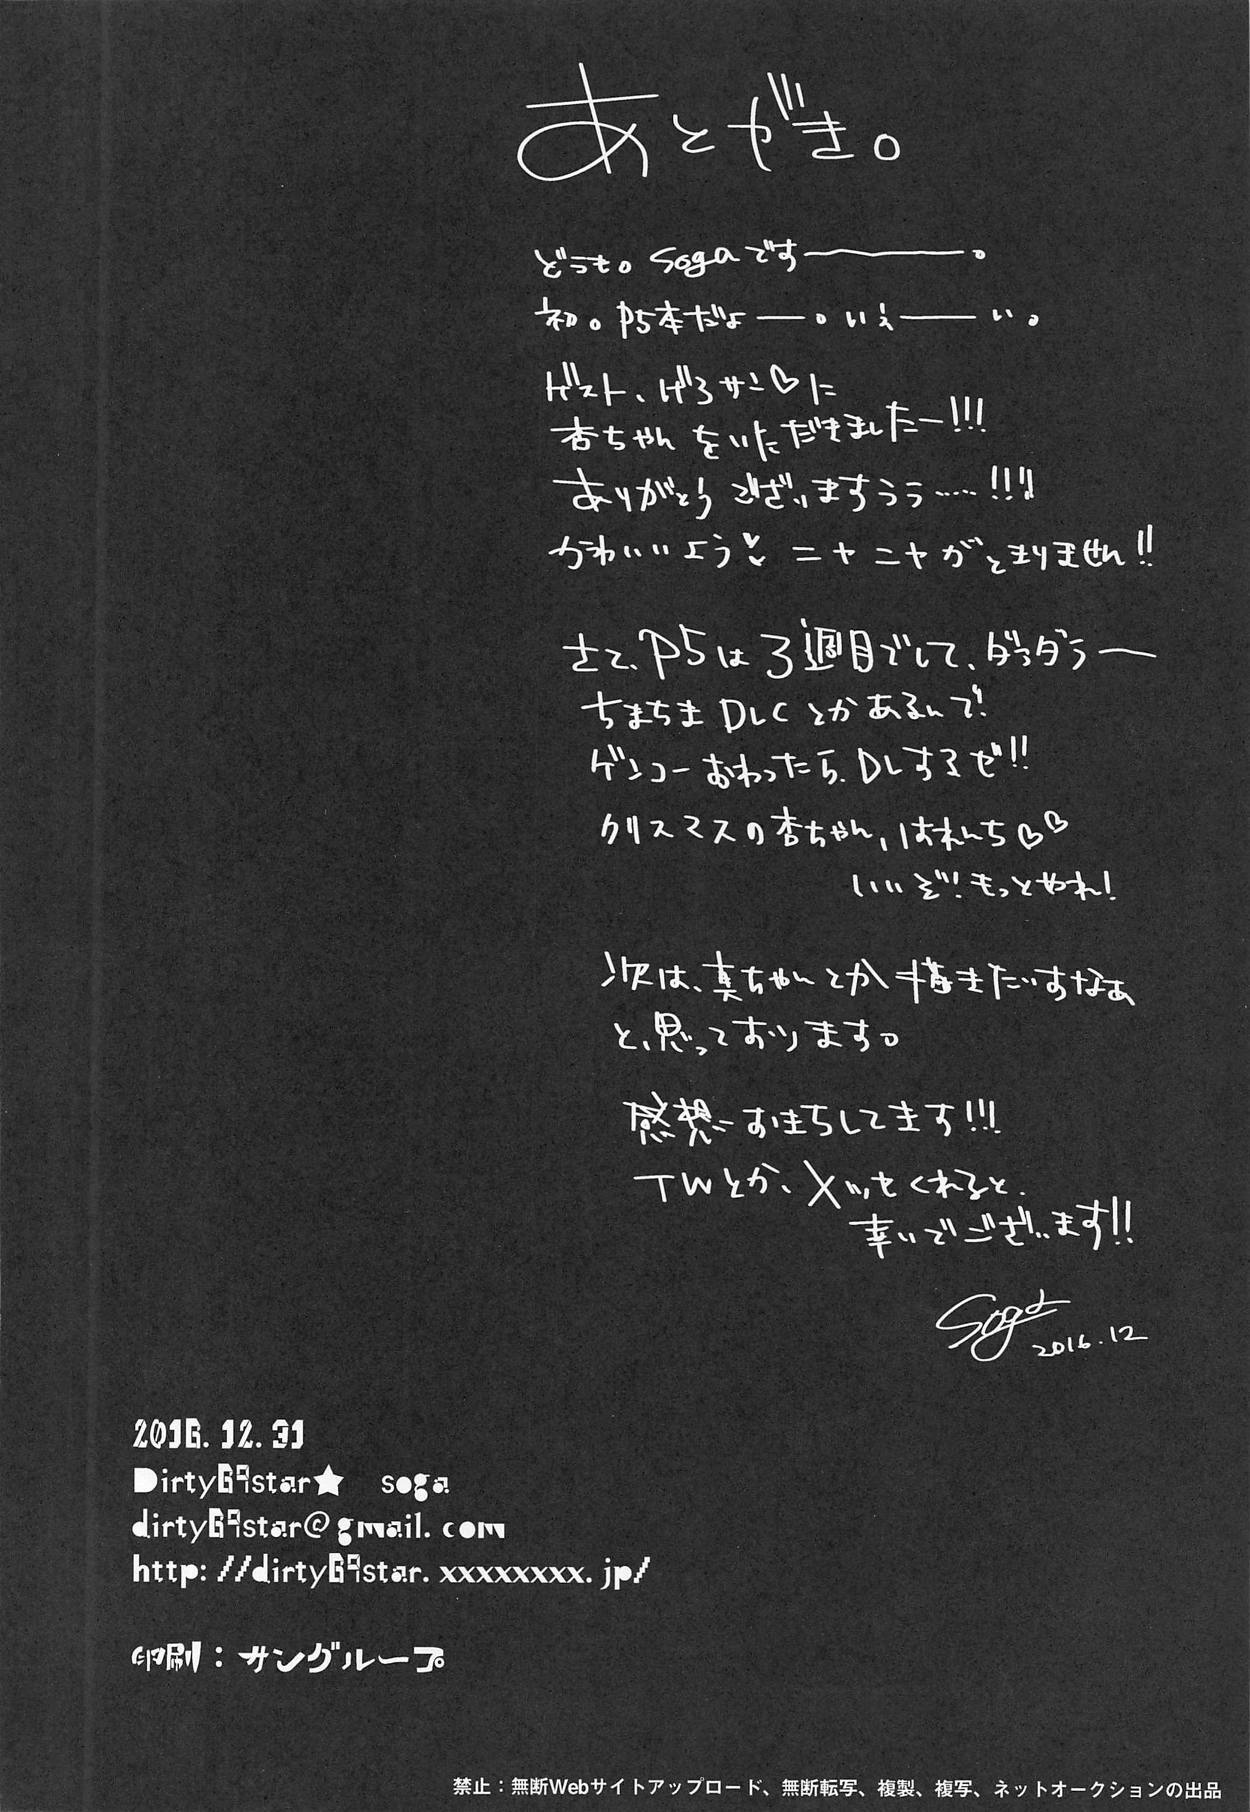 あとがき。
どうも。sogaです―――。
初。P5本だよ―。いえ――い。
ゲスト、げろサン♡に
杏ちゃんをいただきましたー!!!
ありがとうございますうう……!!!
かわいいよう♡ ニヤニヤがとまりません!!
さて、P5は3週目でして、ダラダラ―
ちまちまDLCとかあるんで!
ゲンコーおわったら、DLするぜ!!
クリスマスの杏ちゃん、はれんち♡♡
いいぞ!もっとやれ!
次は、真ちゃんとか描きたいすなぁ
と、思っております。
感想―おまちしてます!!!
TWとか、メッセくれると、
幸いでございます!!
Soga
2016.12
2016.12.31
Dirty69star★ soga
dirty69star@gmail.com
http://dirty69star.xxxxxxxx.jp/
印刷：サングループ
禁止：無断Webサイトアップロード、無断転写、複製、複写、ネットオークションの出品